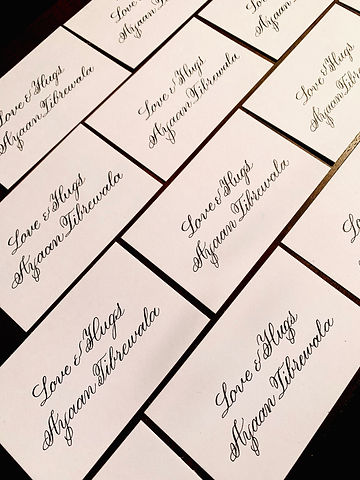 Love & Hugs
Ayaan Tibrewala
Love & Hugs
Ayaan Tibrewala
Love & Hugs
Ayaan Tibrewala
Love & Hugs
Ayaan Tibrewala
Love & Hugs
Ayaan Tibrewala
Love & Hugs
Ayaan Tibrewala
Love & Hugs
Ayaan Tibrewala
Love & Hugs
Ayaan